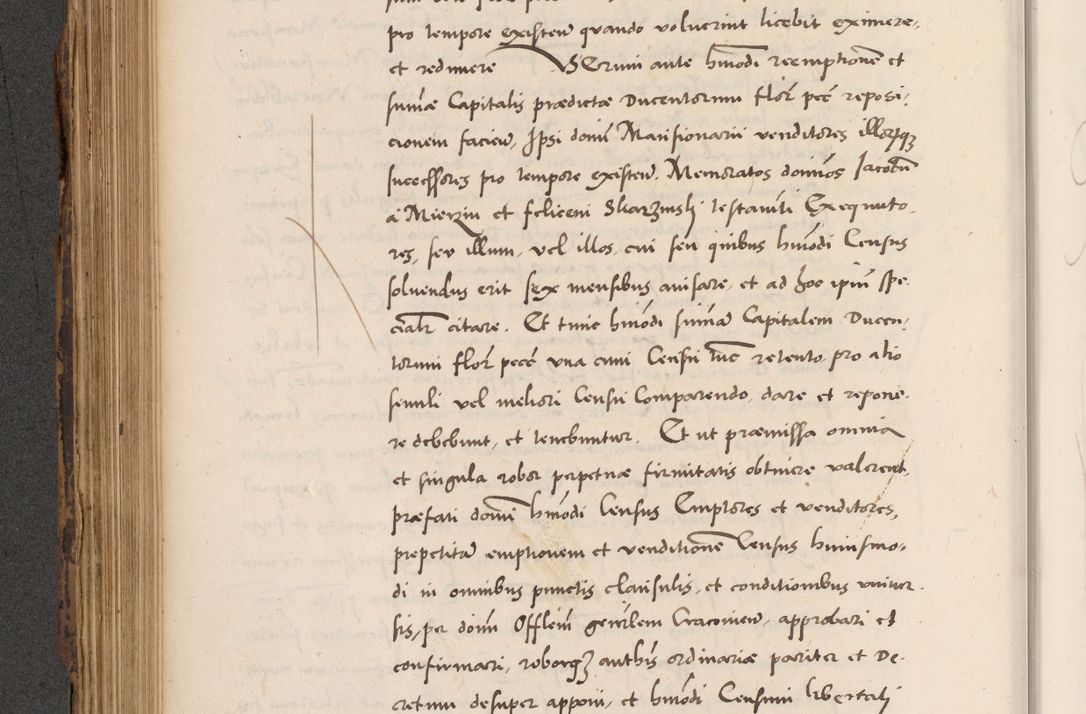 pro tempore existeñ quando voluerint licebit eximere,
et redimere VErum ante hmõdi reemptionẽ et
sum̃æ Capitalis prædictæ Ducentorum florˀ pec̃ reposi,
cionem facieñ, Ipsi domˀi Mansionarii venditores illorꝫque
successores pro tempore existeñ, Memoratos dominos Iacobũ
à Mierzin et feliceni Skarzinski testamẽti Exequuto,
res, seu illum, vel illos, cui seu quibus hmõdi Census
soluendus erit sex mensibus auisare, et ad hoc ipsũ spe
cialr̃ citare. Et tunc hmõdi sum̃ã Capitalem Ducen,
torum florˀ pec̃ una cum Censu tũc retento pro alio
simili vel meliori Censu Comparendo, dare et repone,
re debebunt, et tenebuntur. Et ut præmissa omnia
et singula robor perpetuæ firmitatis obtinere valerent,
præfati domˀi hmõdi Census Emptores et venditores,
prepetitã emptionem et venditionẽ Census huiusmo,
di in omnibus punctis clausulis, et conditionibus uniuer
sis, per domˀi Offlẽm geñrlem Cracouieñ, approbari et
confirmari, roborqꝫ authis̃ ordinariæ pariter et De,
cretum desuper apponi, et hmõdi Censum libertati